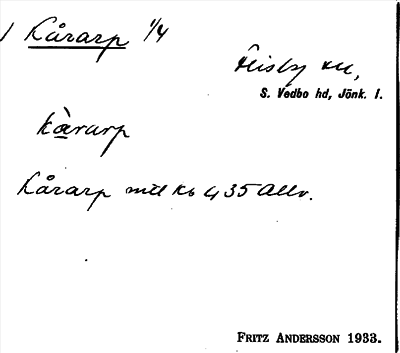 1 Kårarp 1/4
Flisby sn,
S. Vedbo hd, Jönk. l.
kàrarp
Kårarp mtl Kb 435 Allv.
FRITZ ANDERSSON 1933.